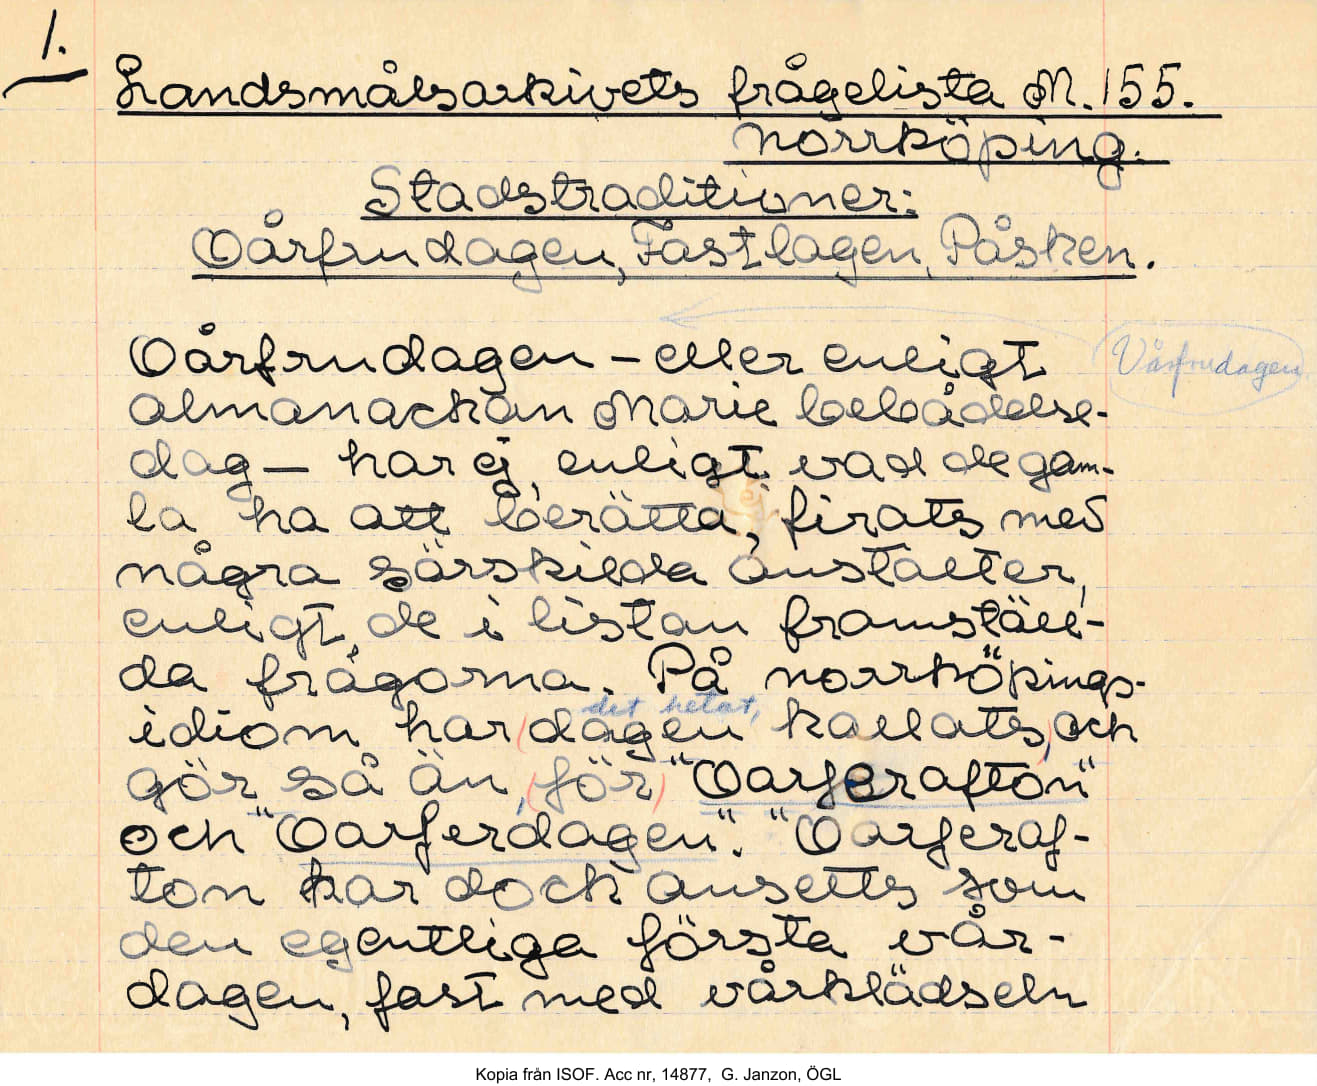 1.
Landsmålsarkivets frågelista M. 155.
Norrköping.
Stadstraditioner:
Vårfrudagen, Fastlagen, Påsken.
Vårfrudagen – eller enligt
Vårfrudagen
almanackan Marie bebådelse-
dag – har ej, enligt vad de gam-
la ha att berätta, firats med
några särskilda anstalter,
enligt de i listan framställ-
da frågorna. På norrköpings-
det hetat,
idiom har (dagen kallats, och
gör så än, (för) "Varferafton"
och "Varferdagen". "Varferaf-
ton har dock ansetts som
den egentliga första vår-
dagen, fast med vårklädseln
Kopia från ISOF. Acc nr, 14877, G. Janzon, ÖGL